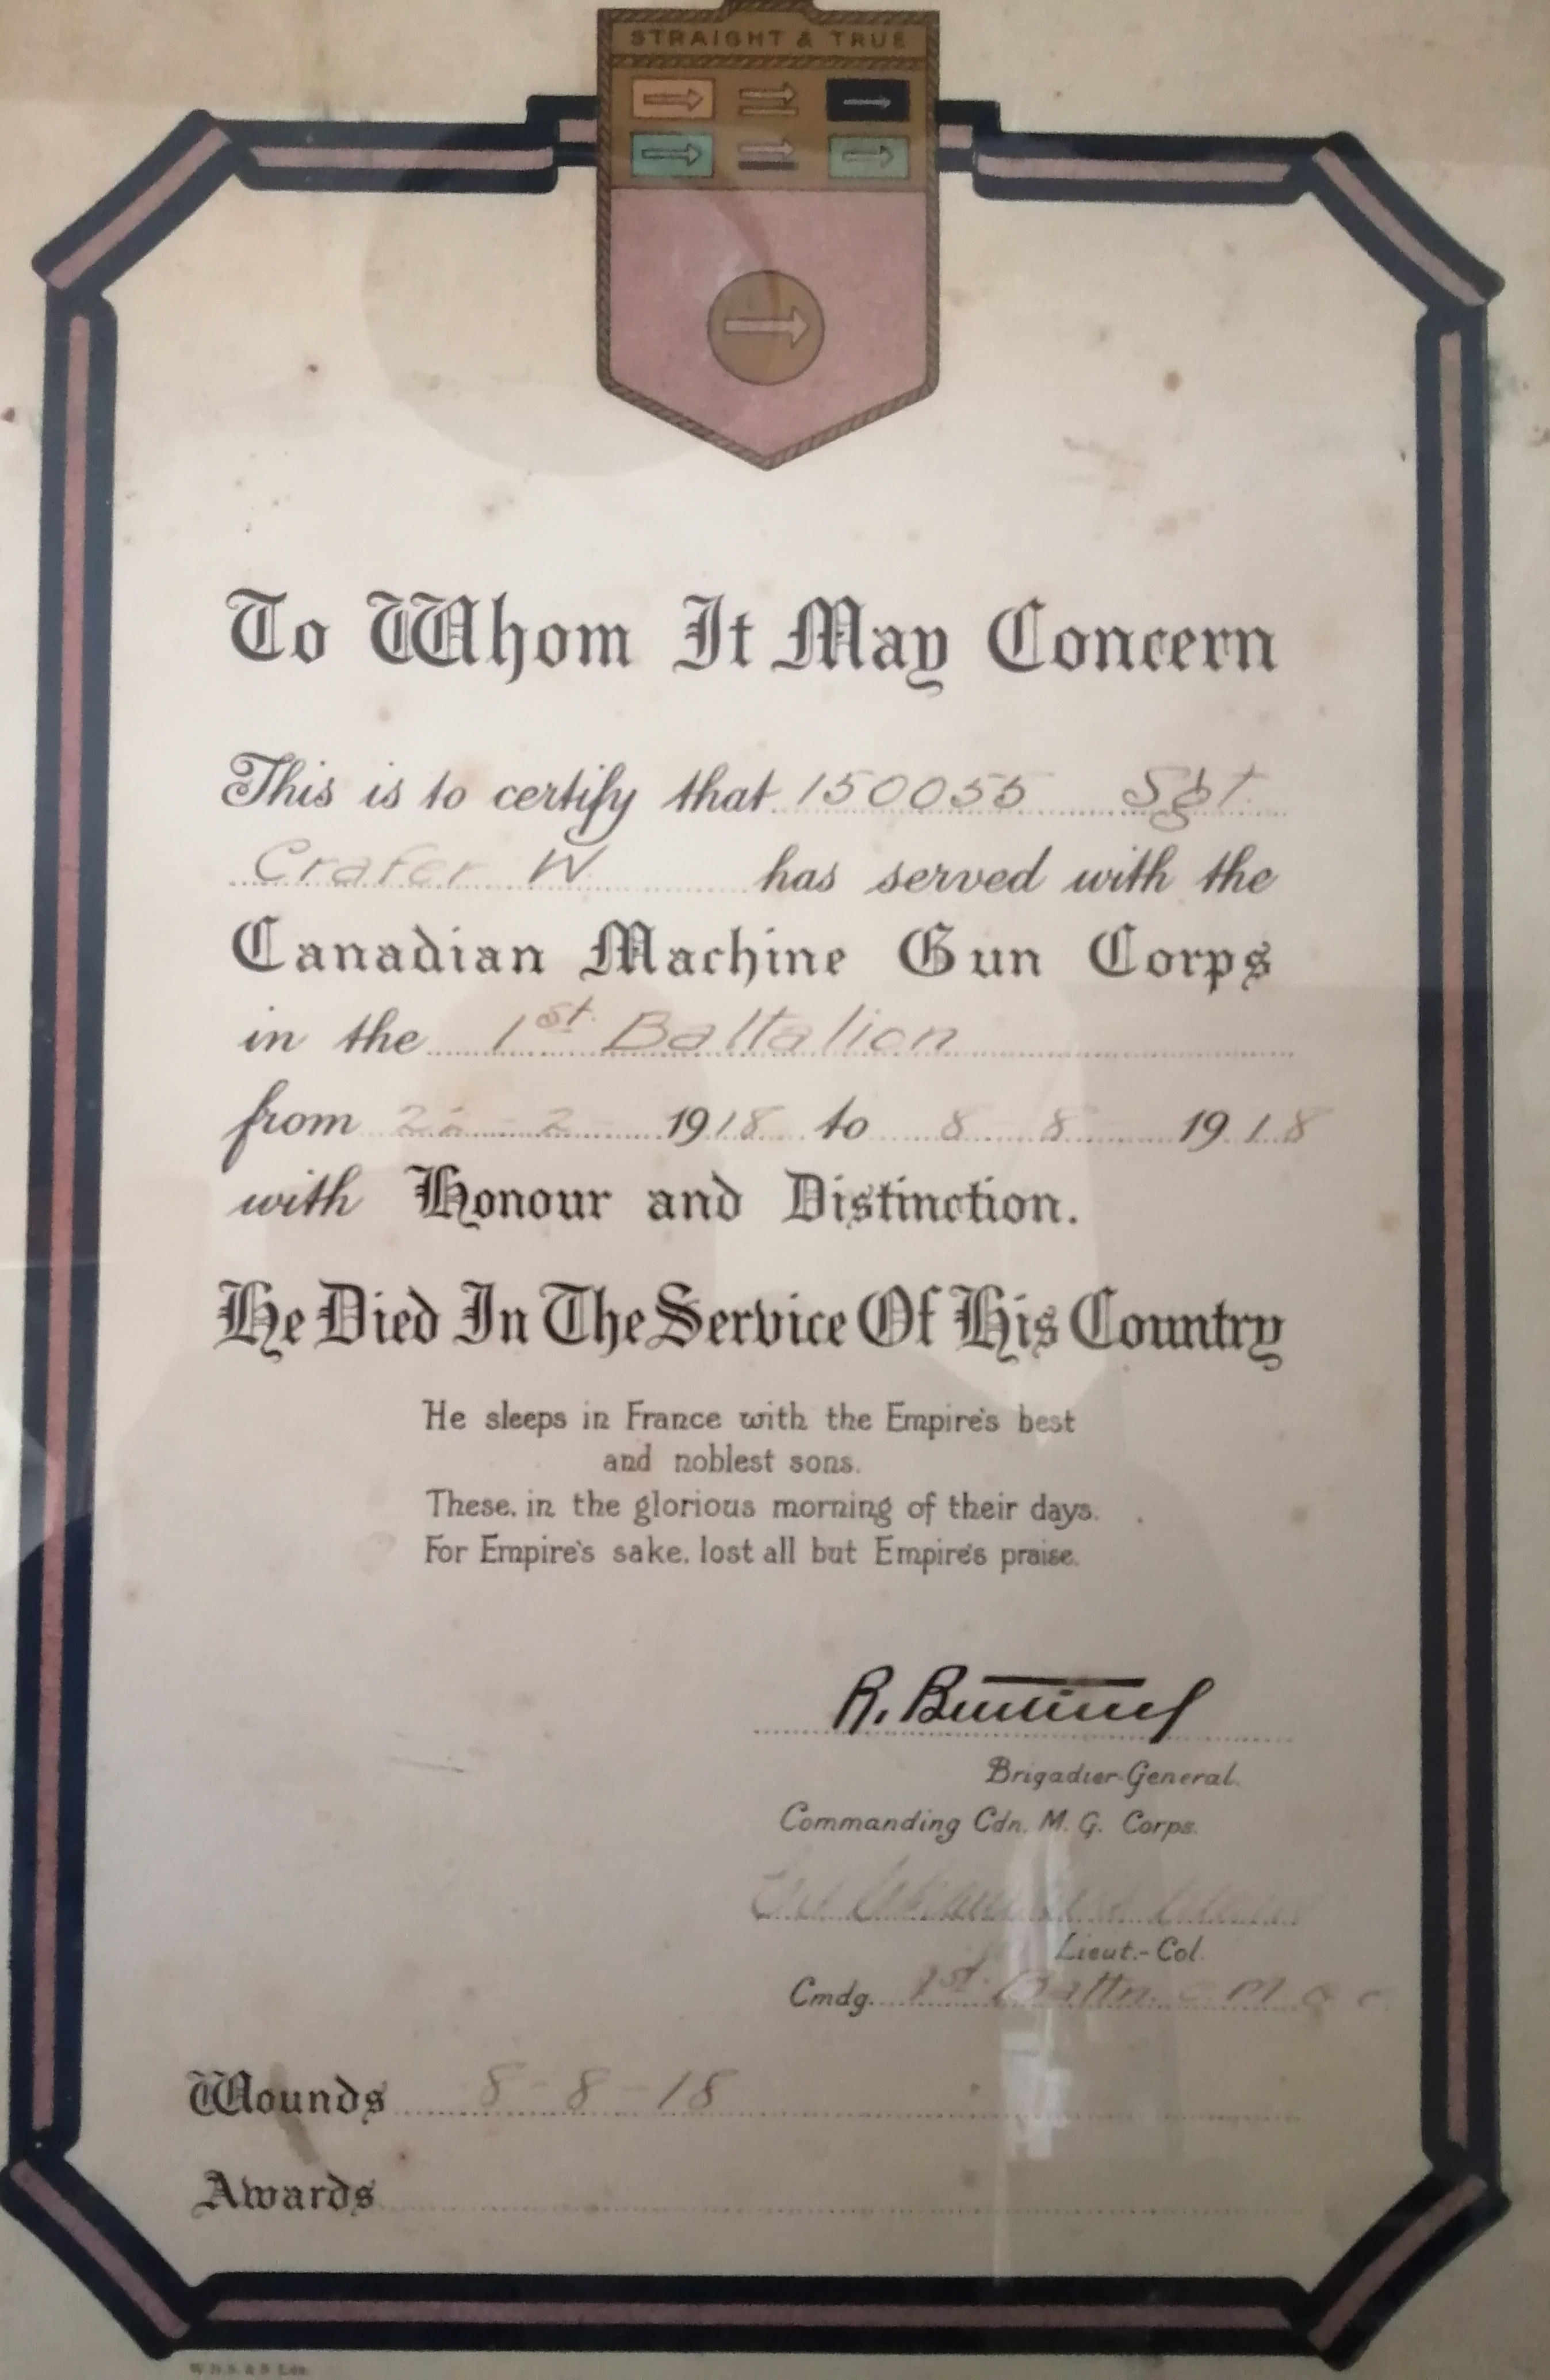 STRAIGHT & TRUE
To Whom It May Concern
This is to certify that 150055 Sgt.
Crafer W has served with the
Canadian Machine Gun Corps
in the 1st. Battalion
from 2 - 2 1918 to 8 8 1918
with Honour and Distinction.
He Died In The Service Of His Country
He sleeps in France with the Empire's best
and noblest sons.
These, in the glorious morning of their days,
For Empire's sake, lost all but Empire's praise.
R. Brutinel
Brigadier-General.
Commanding Cdn. M. G. Corps.
Lieut.-Col.
Cmdg. 1st. Battn. C M G C
Wounds 8-8-18
Awards